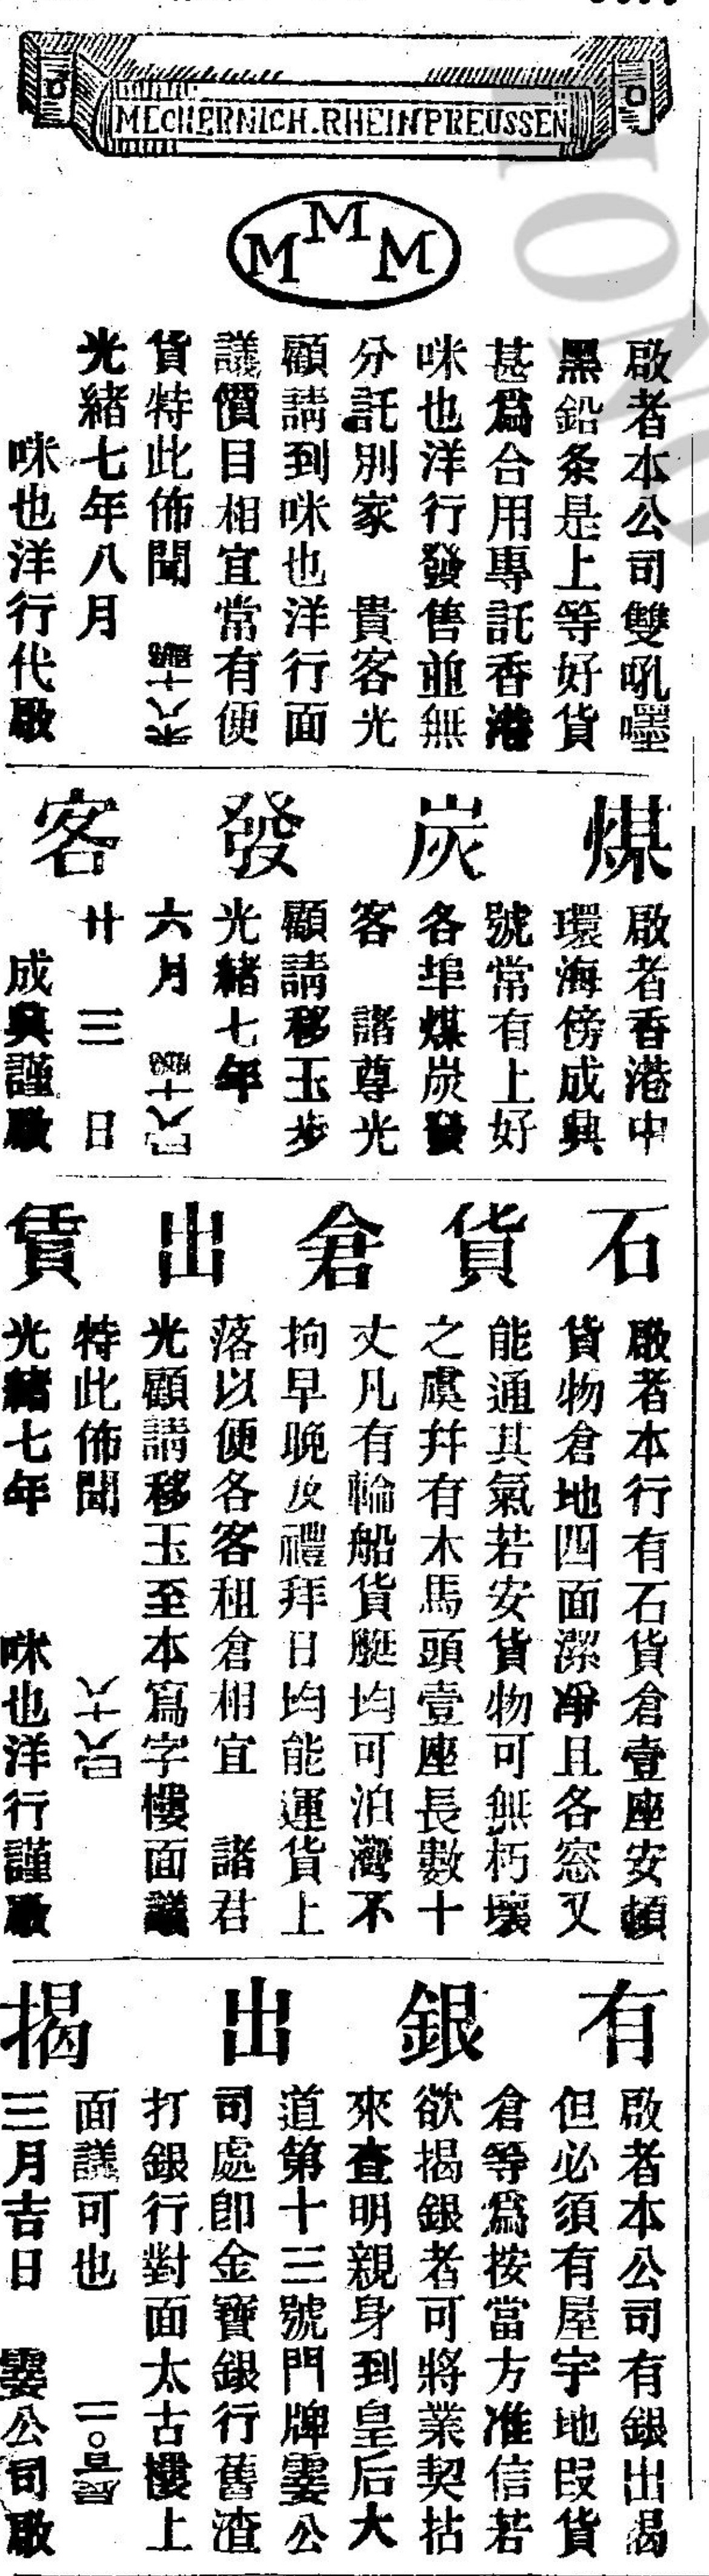 MECHERNICH.RHEINPREUSSEN
M M M
啟者本公司雙吼嚜
黑鉛条是上等好貨
甚爲合用專託香港
咪也洋行發售並無
分託別家 貴客光
顧請到咪也洋行面
議價目相宜常有便
貨特此佈聞
光緒七年八月
咪也洋行代啟
煤炭發客
啟者香港中
環海傍成興
號常有上好
各埠煤炭發
客 諸尊光
顧請移玉步
光緒七年
六月
廿三日
成興謹啟
石貨倉出賃
啟者本行有石貨倉壹座安頓
貨物倉地四面潔凈且各窓又
能通其氣若安貨物可無朽壞
之虞并有木馬頭壹座長數十
丈凡有輪船貨艇均可泊灣不
拘早晚及禮拜日均能運貨上
落以便各客租倉相宜 諸君
光顧請移玉至本寫字樓面議
特此佈聞
光緒七年 咪也洋行謹啟
有銀出揭
啟者本公司有銀出揭
但必須有屋宇地段貨
倉等爲按當方准信若
欲揭銀者可將業契拈
來查明親身到皇后大
道第十三號門牌霎公
司處即金寶銀行舊渣
打銀行對面太古樓上
面議可也
三月吉日 霎公司啟